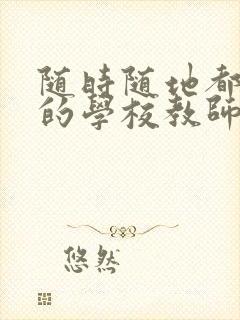 随時随地都
的學校教師
悠然